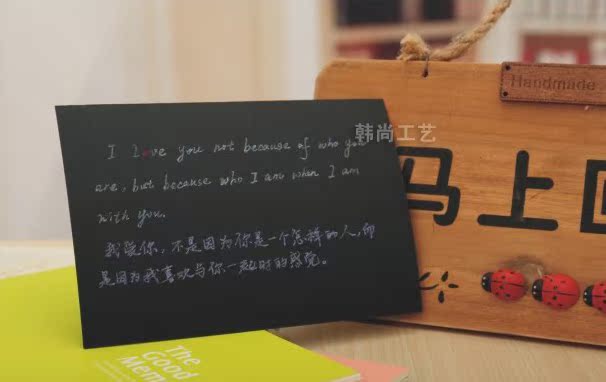 I Love you not because of who you
are, but because who I am when I am
with you.
我爱你，不是因为你是一个怎样的人，而
是因为我喜欢与你一起时的感觉。
韩尚工艺
Handmade
马上
The
Good
Mem